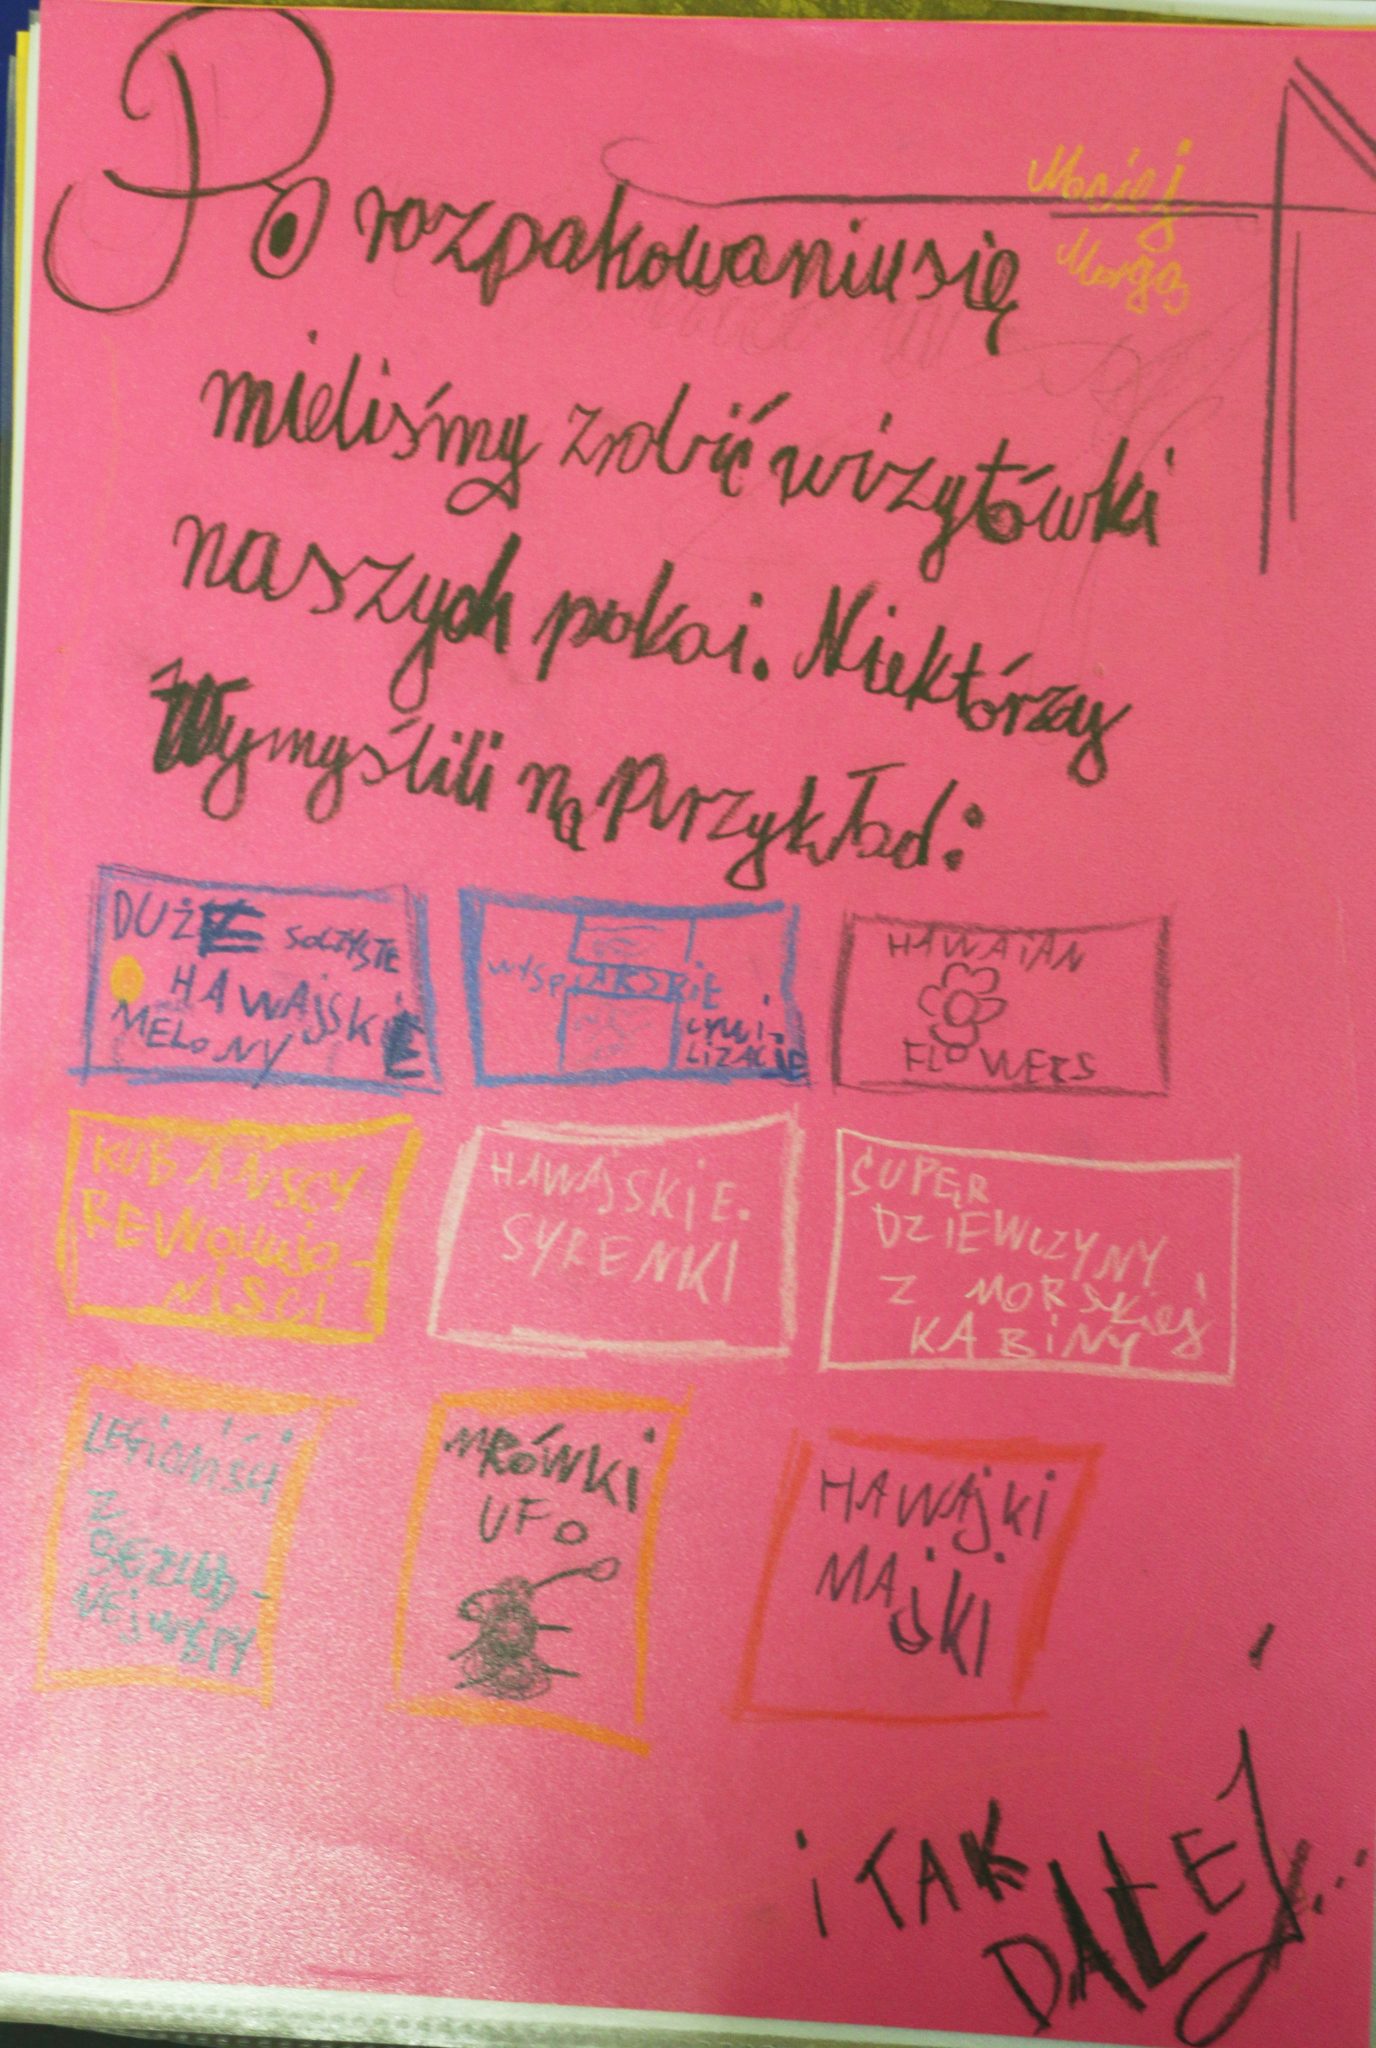 Maciej
Morga
Po rozpakowaniu się
mieliśmy zrobić wizytówki
naszych pokoi. Niektórzy
Wymyślili na przykład:
DUŻE SOCZYSTE
HAWAJSKIE
MELONY
WYSPIARSKIE
CYWI-
LIZACJE
HAWAIAN
FLOWERS
KUBAŃSCY
REWOLUCJO-
NIŚCI
HAWAJSKIE
SYRENKI
SUPER
DZIEWCZYNY
Z MORSKIEJ
KABINY
LEGIONIŚCI
Z
BEZLUD-
NEJ WYSPY
MRÓWKI
UFO
HAWAJKI
MAJKI
i TAK
DALEJ...